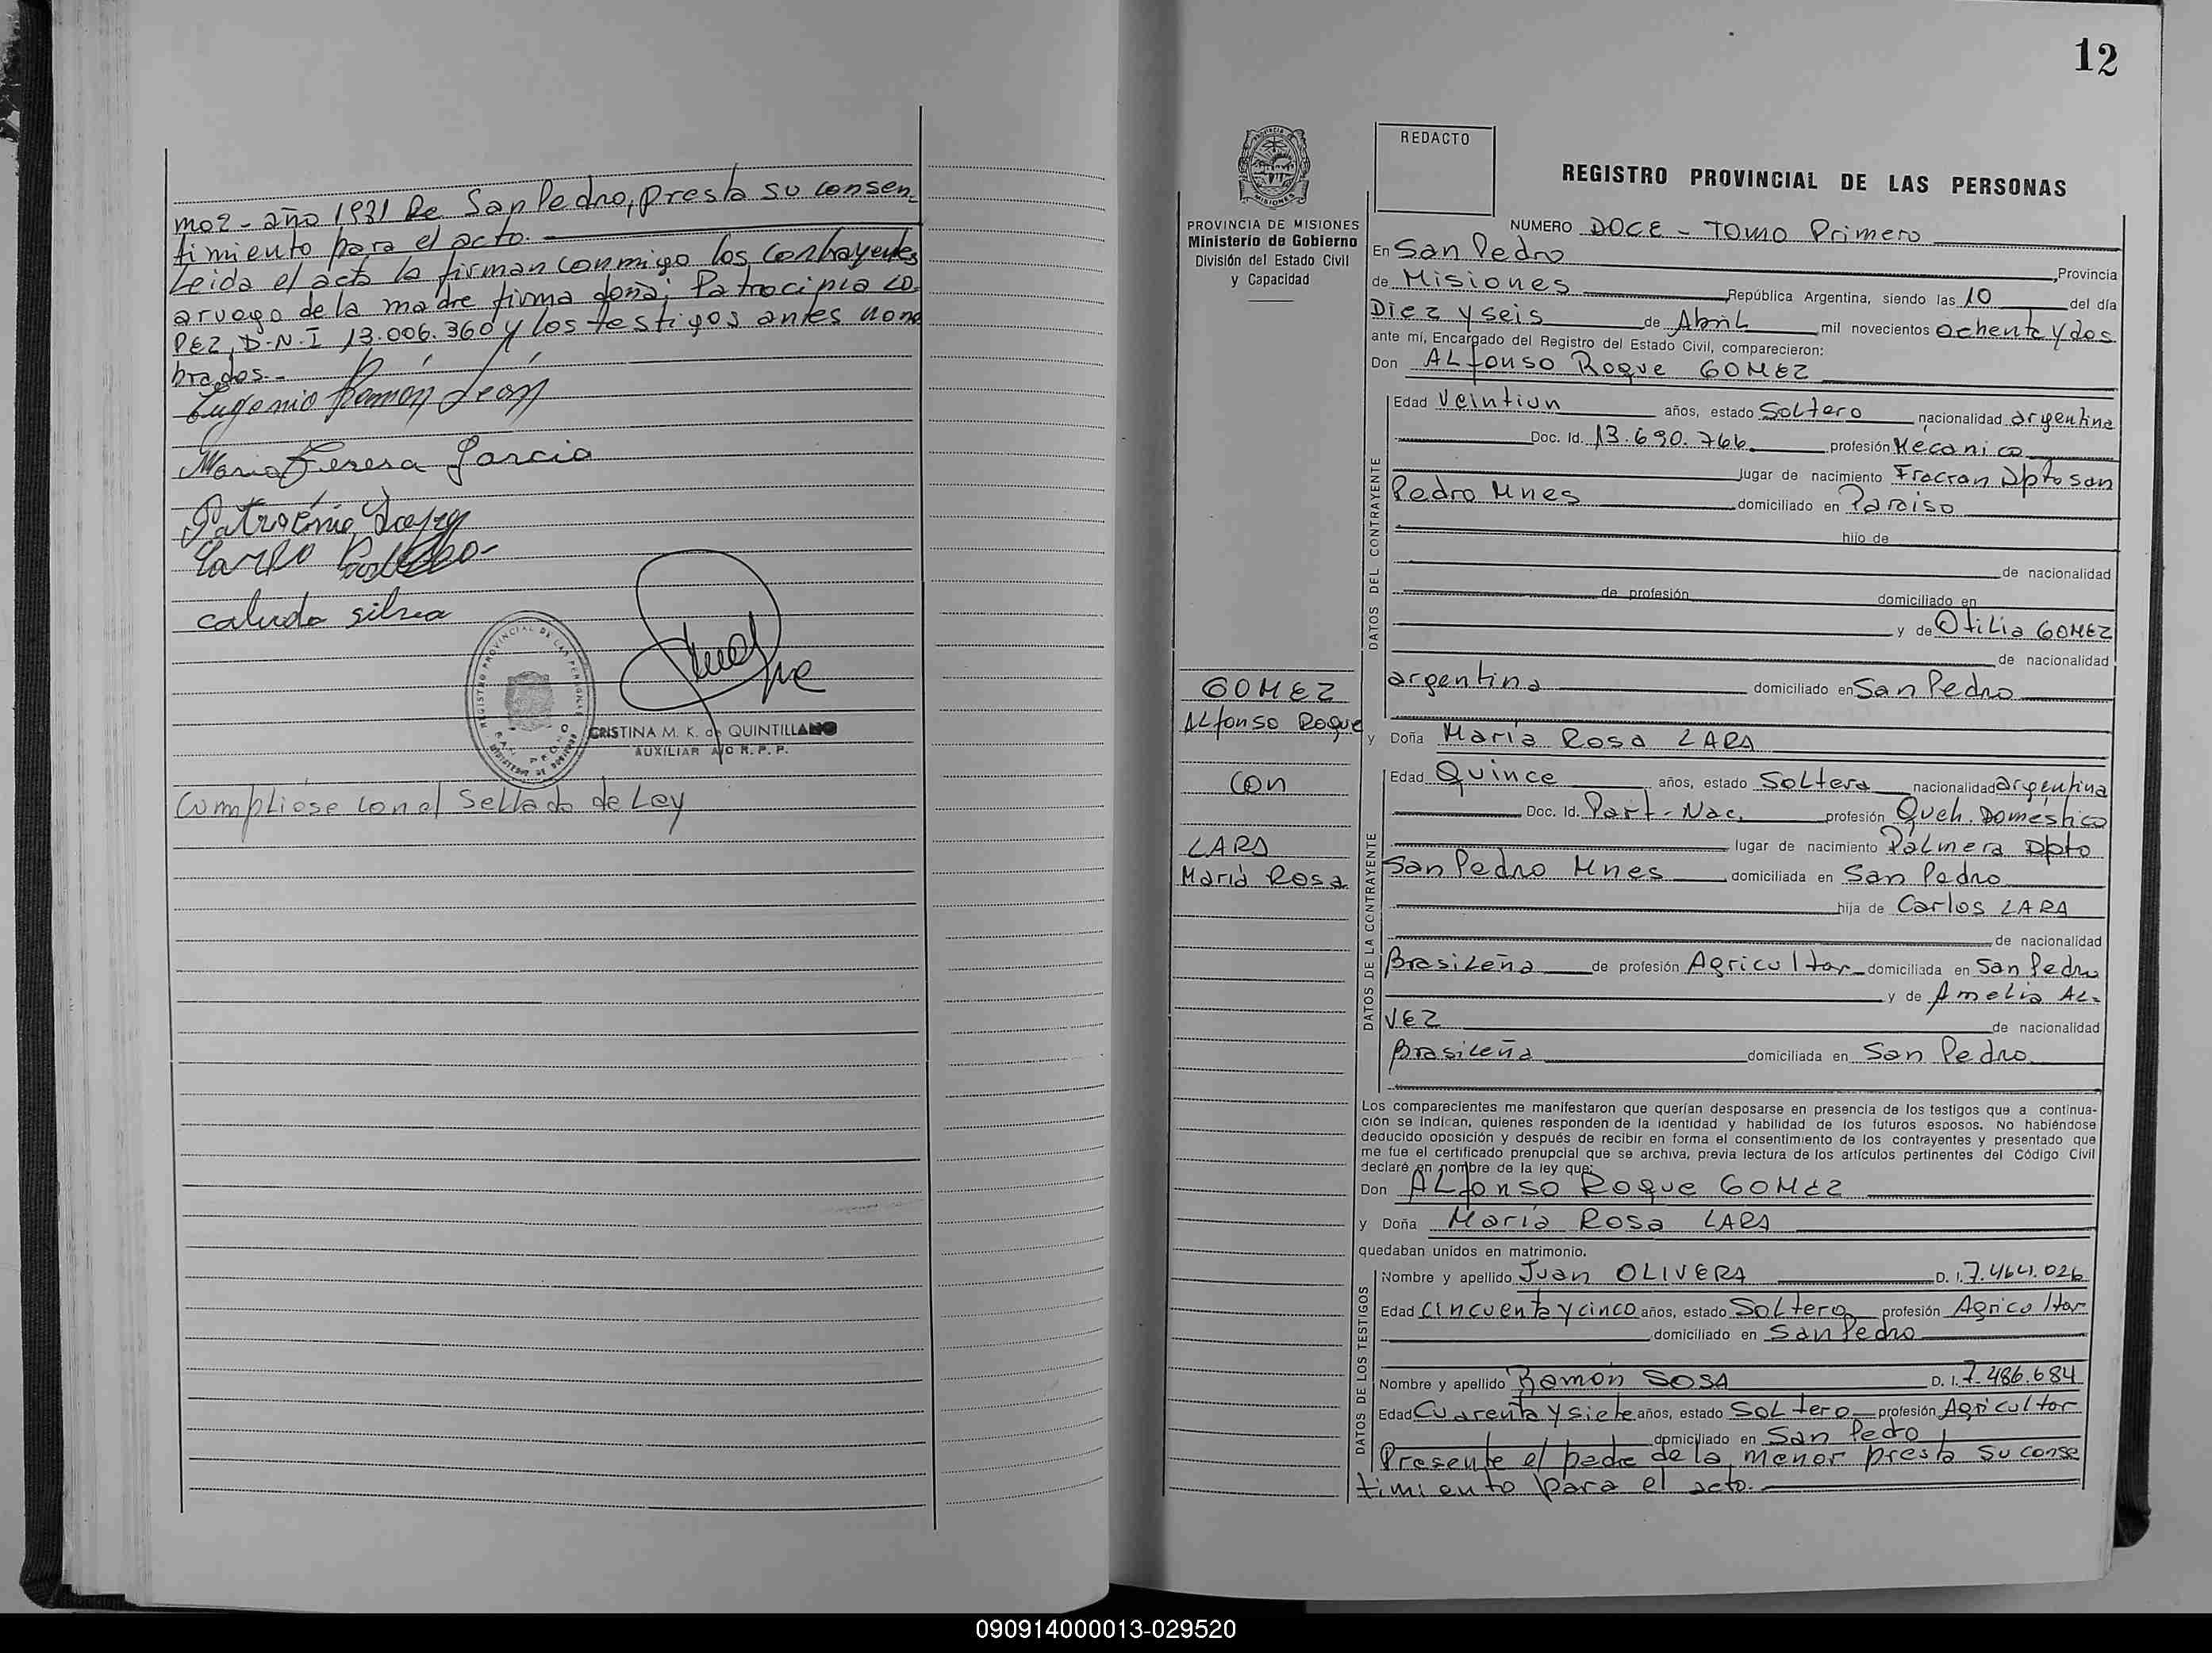 mo2 - año 1981 de San Pedro, presta su consen-
timiento para el acto.-
Leida el acta la firman conmigo los contrayentes
a ruego de la madre firma doña; Patrocinia LO-
PEZ, D-N-I 13.006.360 y los testigos antes nom
brados.-
Eugenio Ramón León
Maria Teresa Garcia
caluda silva
REGISTRO PROVINCIAL DE LAS PERSONAS
CRISTINA M. K. de QUINTILLANO
AUXILIAR A/C R. P. P.
Cumplióse con el Sellado de Ley
12
REDACTO
REGISTRO PROVINCIAL DE LAS PERSONAS
PROVINCIA DE MISIONES
Ministerio de Gobierno
División del Estado Civil
y Capacidad
NUMERO DOCE - TOMO Primero
En San Pedro
,Provincia
de Misiones República Argentina, siendo las 10 del día
Diez y seis de Abril mil novecientos ochenta y dos
ante mí, Encargado del Registro del Estado Civil, comparecieron:
Don ALfonso Roque GOMEZ
DATOS DEL CONTRAYENTE
Edad Veintiun años, estado Soltero nacionalidad argentina
Doc. Id. 13.690.766 profesión Mécanico
lugar de nacimiento Fracran Dpto San
Pedro Mnes domiciliado en Paraiso
hijo de
de nacionalidad
de profesión domiciliado en
y de Otilia GOMEZ
de nacionalidad
argentina domiciliado en San Pedro
GOMEZ
ALfonso Roque
con
LARA
Maria Rosa
y Doña Maria Rosa LARA
DATOS DE LA CONTRAYENTE
Edad Quince años, estado Soltera nacionalidad argentina
Doc. Id. Part-Nac. profesión Queh. Domestico
lugar de nacimiento Palmera Dpto
San Pedro Mnes domiciliada en San Pedro
hija de Carlos LARA
de nacionalidad
Brasileña de profesión Agricultor domiciliada en San Pedro
y de Amelia AL-
VEZ de nacionalidad
Brasileña domiciliada en San Pedro
Los comparecientes me manifestaron que querían desposarse en presencia de los testigos que a continua-
ción se indican, quienes responden de la identidad y habilidad de los futuros esposos. No habiéndose
deducido oposición y después de recibir en forma el consentimiento de los contrayentes y presentado que
me fue el certificado prenupcial que se archiva, previa lectura de los artículos pertinentes del Código Civil
declaré en nombre de la ley que:
Don ALfonso Roque GOMEZ
y Doña Maria Rosa LARA
quedaban unidos en matrimonio.
DATOS DE LOS TESTIGOS
Nombre y apellido Juan OLIVERA D. I. 7.464.026
Edad cincuenta y cinco años, estado Soltero profesión Agricultor
domiciliado en San Pedro
Nombre y apellido Ramón SOSA D. I. 7.486.684
Edad Cuarenta y siete años, estado Soltero profesión Agricultor
domiciliado en San Pedro
Presente el padre de la menor presta su conse
timiento para el acto.
090914000013-029520